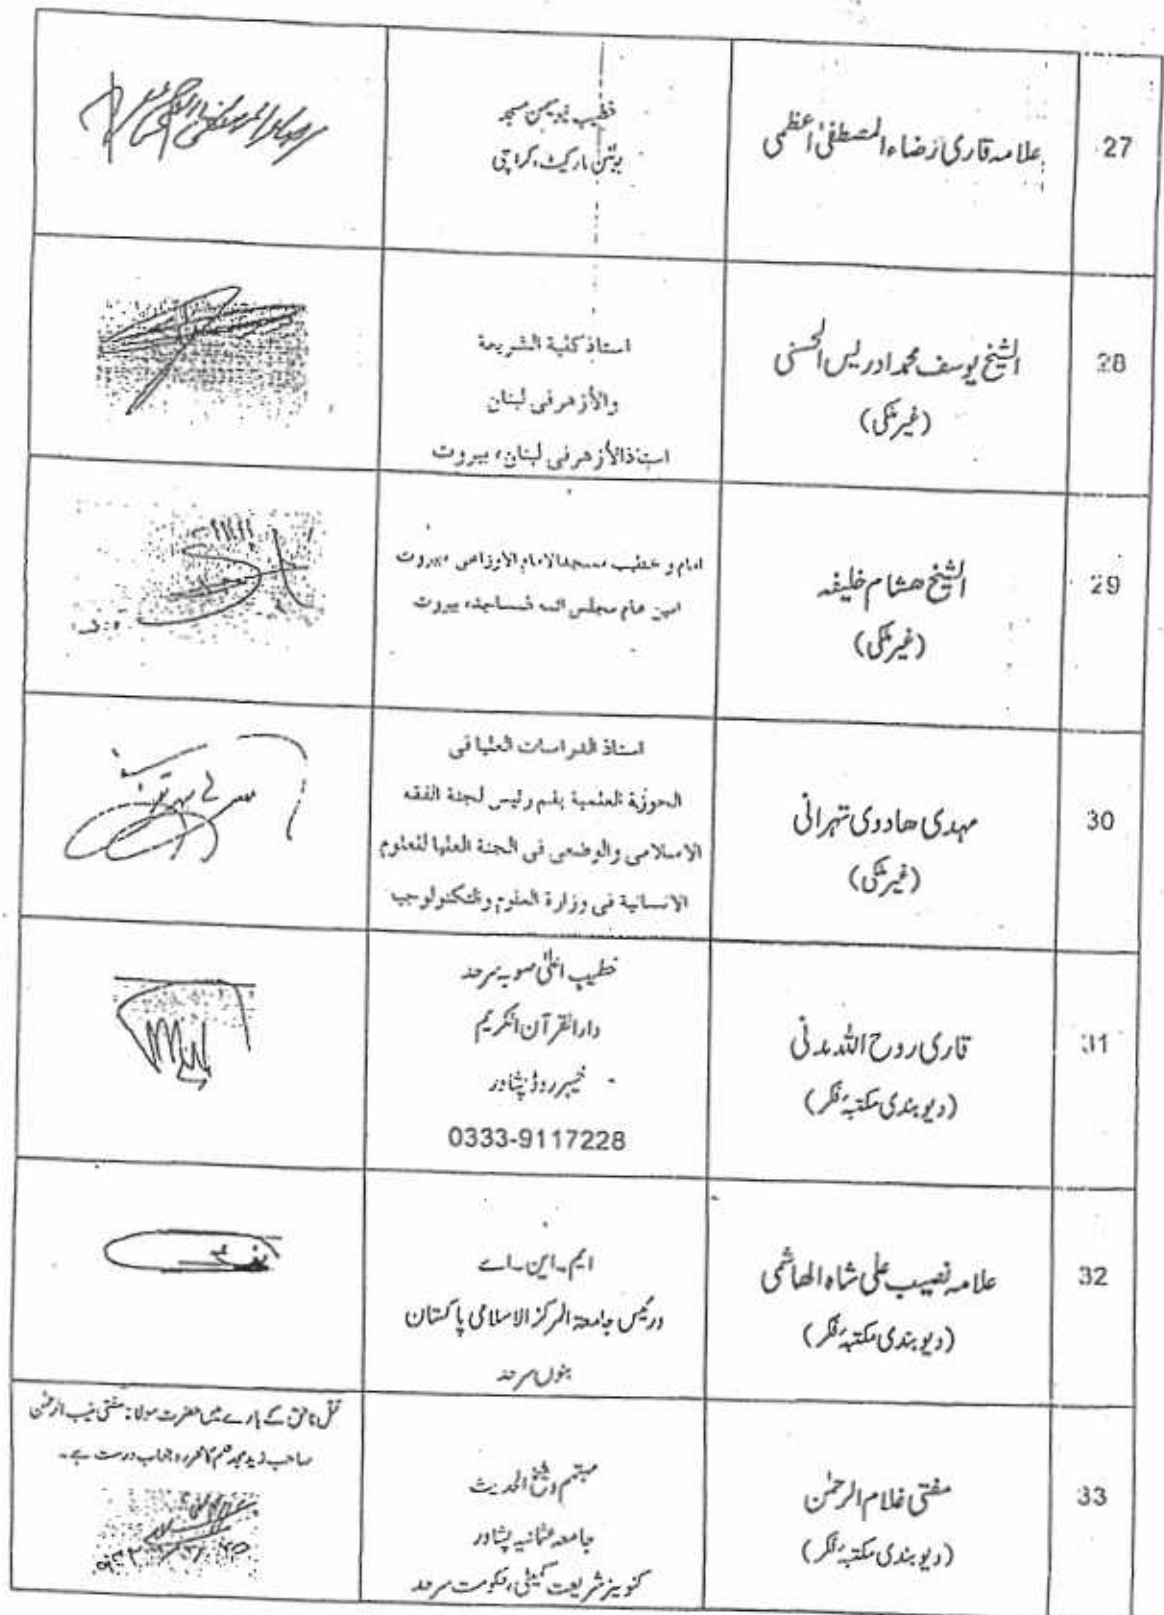 27
علامہ قاری رضاء المصطفیٰ اعظمی
خطیب نیو میمن مسجد
بولٹن مارکیٹ، کراچی
28
الشیخ یوسف محمد ادریس الحسنی
(غیر ملکی)
استاذ كلية الشريعة
والأزهر فى لبنان
استاذ الأزهر فى لبنان، بيروت
29
الشیخ هشام خلیفہ
(غیر ملکی)
امام و خطيب مسجد الامام الاوزاعى بيروت
امين عام مجلس ائمه المساجد، بيروت
30
مہدی هادوی تہرانی
(غیر ملکی)
استاذ الدراسات العليا فى
الحوزة العلمية بقم ورئيس لجنة الفقه
الاسلامى والوضعى فى الجنة العليا للعلوم
الانسانية فى وزارة العلوم والتكنولوجيا
31
قاری روح اللہ مدنی
(دیوبندی مکتبہ فکر)
خطیب اعلیٰ صوبہ سرحد
دارالقرآن الکریم
خیبر روڈ پشاور
0333-9117228
32
علامہ نصیب علی شاہ الھاشمی
(دیوبندی مکتبہ فکر)
ایم۔این۔اے
ورئیس جامعۃ المرکز الاسلامی پاکستان
بنوں سرحد
33
مفتی غلام الرحمٰن
(دیوبندی مکتبہ فکر)
مہتمم وشیخ الحدیث
جامعہ عثمانیہ پشاور
کنوینر شریعت کمیٹی، حکومت سرحد
قتل ناحق کے بارے میں حضرت مولانا مفتی منیب الرحمٰن
صاحب زید مجدھم کا محررہ جواب درست ہے۔